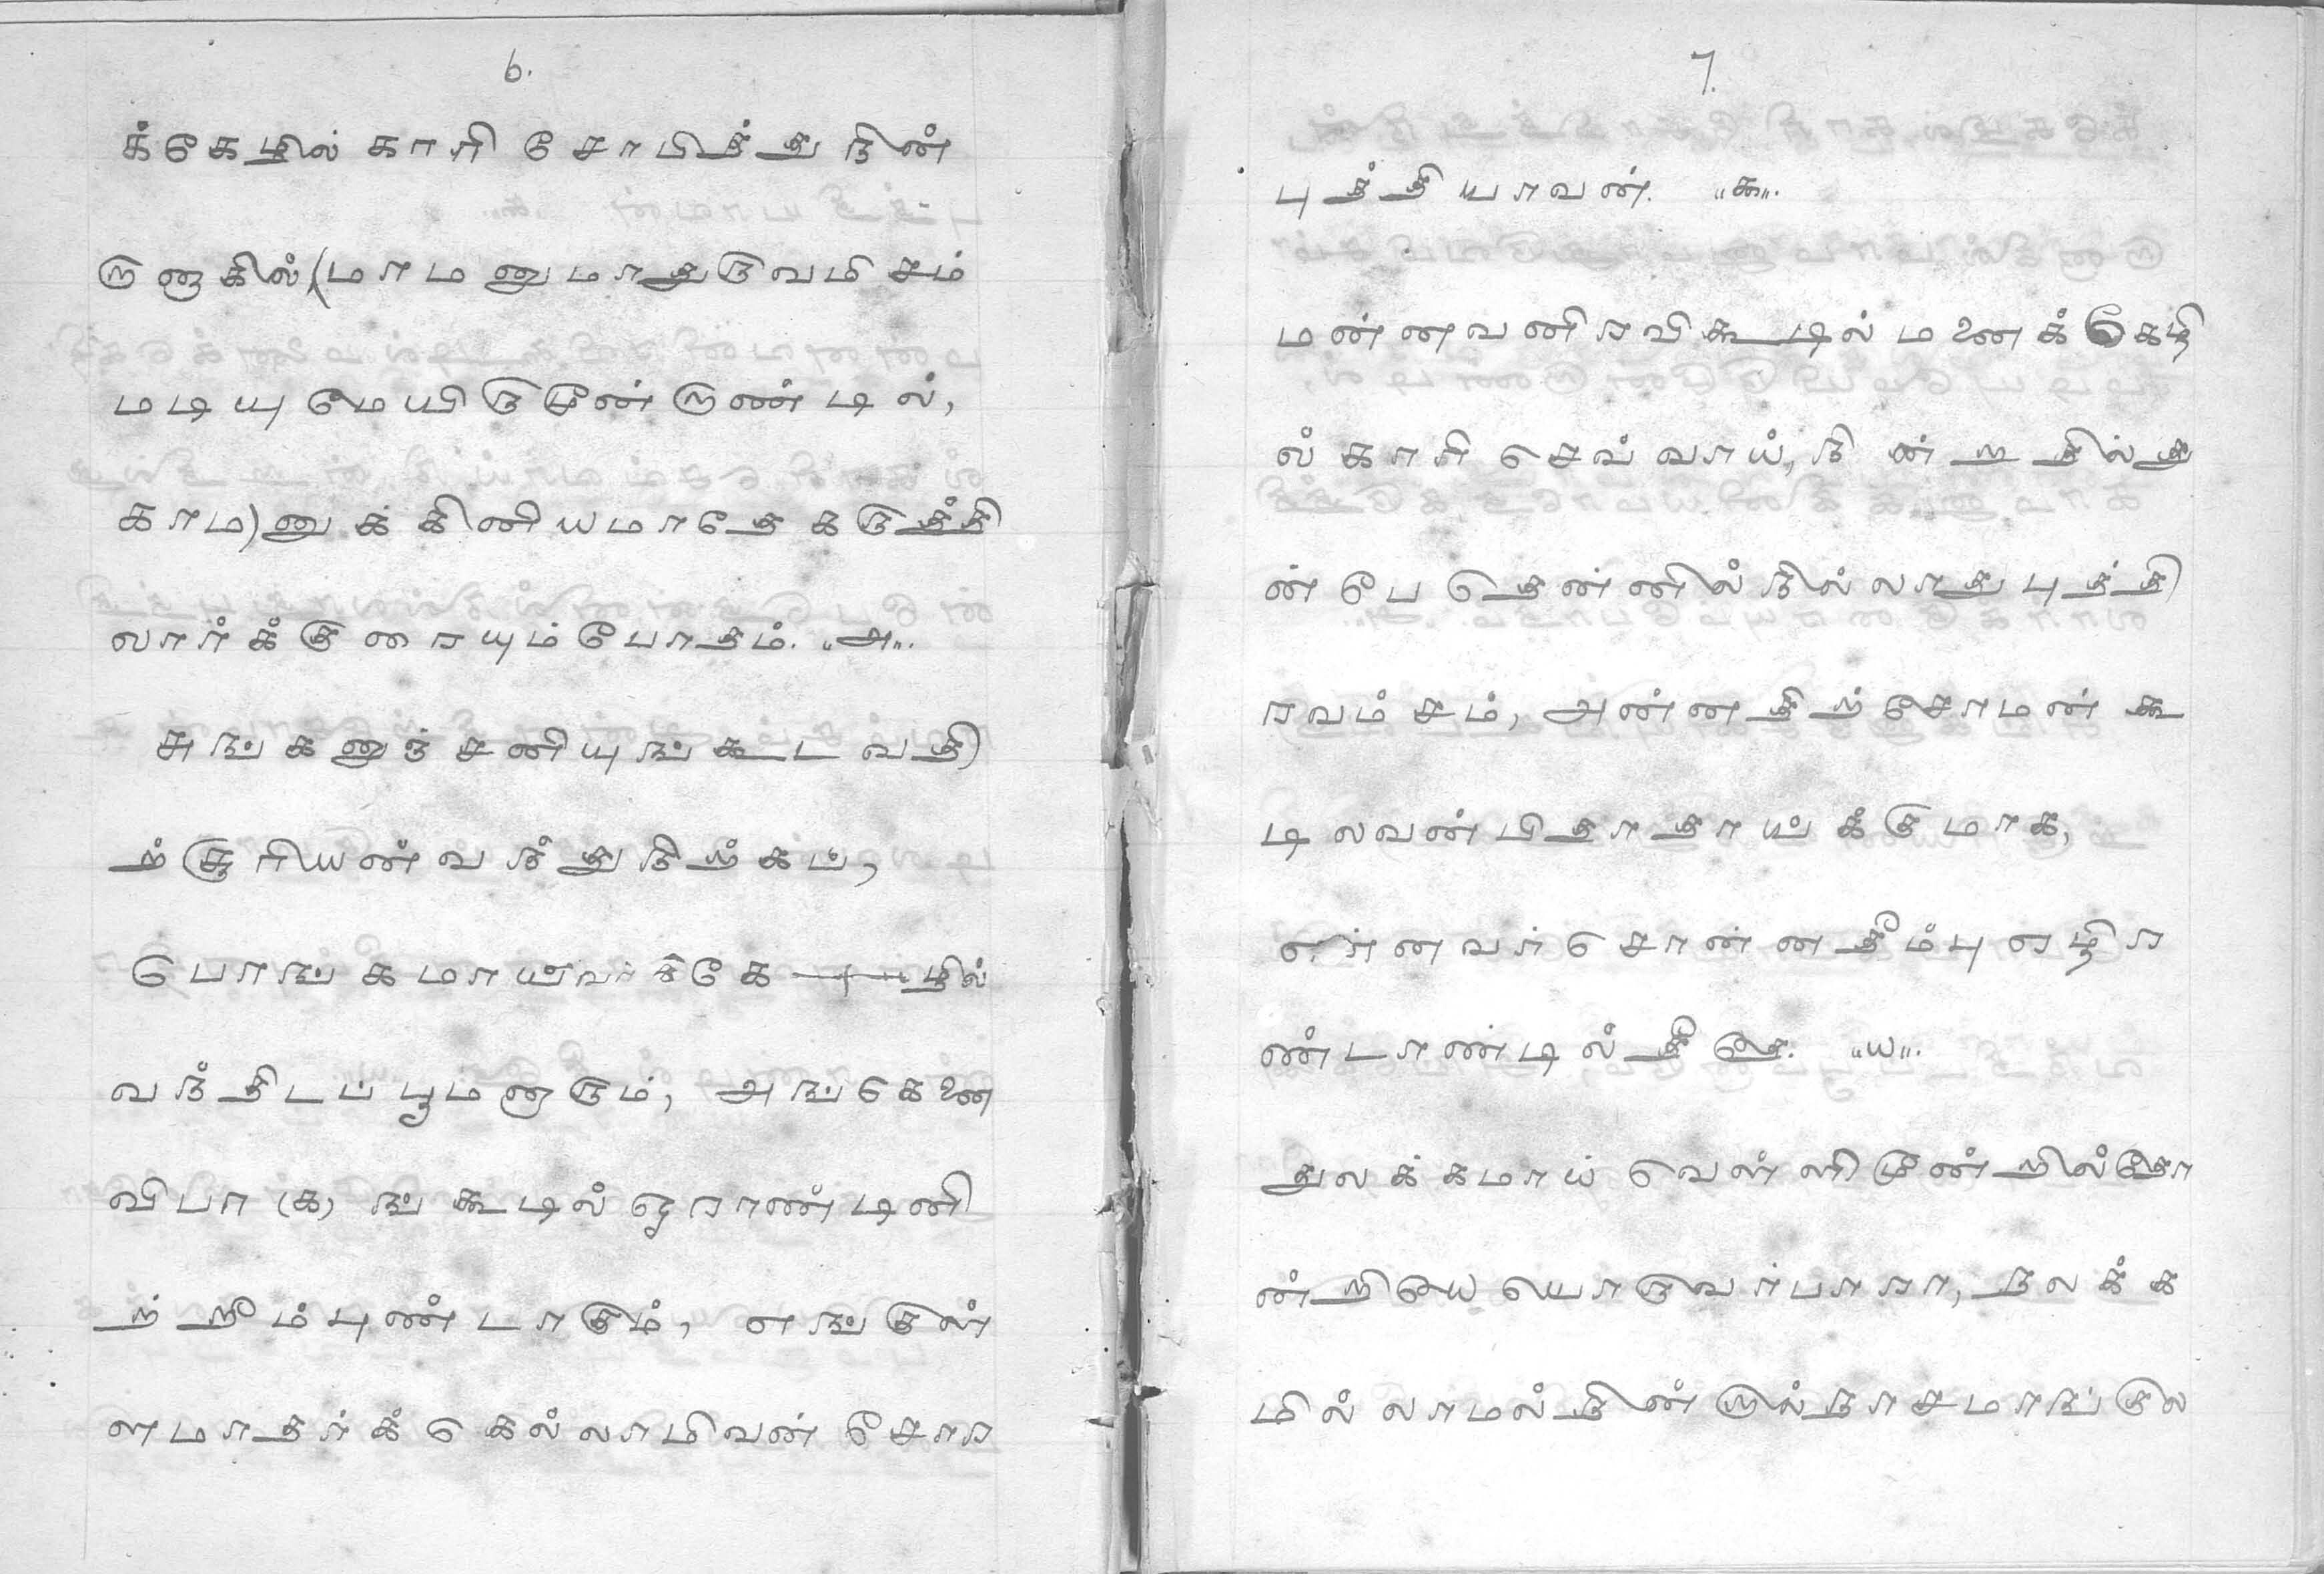 6.
க்கேழில் காரி சோபித்து நின்
றுளகில் (மாமனு மாதுருவமிசம்
மடியுமேயிருமூன் றாண்டில்,
காம)னுக் கினியமாதே கருத்தி
லார்க் குரையும்போதம். "அ".
அங்கனுஞ் சனியுங்கூட வதி
ற்சூரியன்வந்துநிற்கப்,
பொங்கமாய்வர்க்கே ழில்
வந்திடப் பூமனாரும், அங்கெனை
விபா (க) ங்கூடில் ஐராண்டினி
ற் றீம்புண்டாகும், எங்குள்
ளமாதர்க் கெல்லாமிவன் சோர
7.
புத்தியாவன். "௯".
மன்னவனிரவிகூடில் மனைக்கெழி
ல்காரி செவ்வாய், நின்றதில்கு
ன்பே தென்னில் நில்லாது புத்தி
ரவம்சம், அன்னதிற் சோமன் கூ
டிலவன்பிதாதாய்க்குமாக,
எர்னவர்சொன்னதீம்பு எழிர
ண்டாண்டில் தீதே. "ய".
துலக்கமாய் வெள்ளிமூன்றில்தோ
ன்றியே யொருவர்பாரா, நலக்க
மில்லாமல் நின் றால்நாசமாங்குல